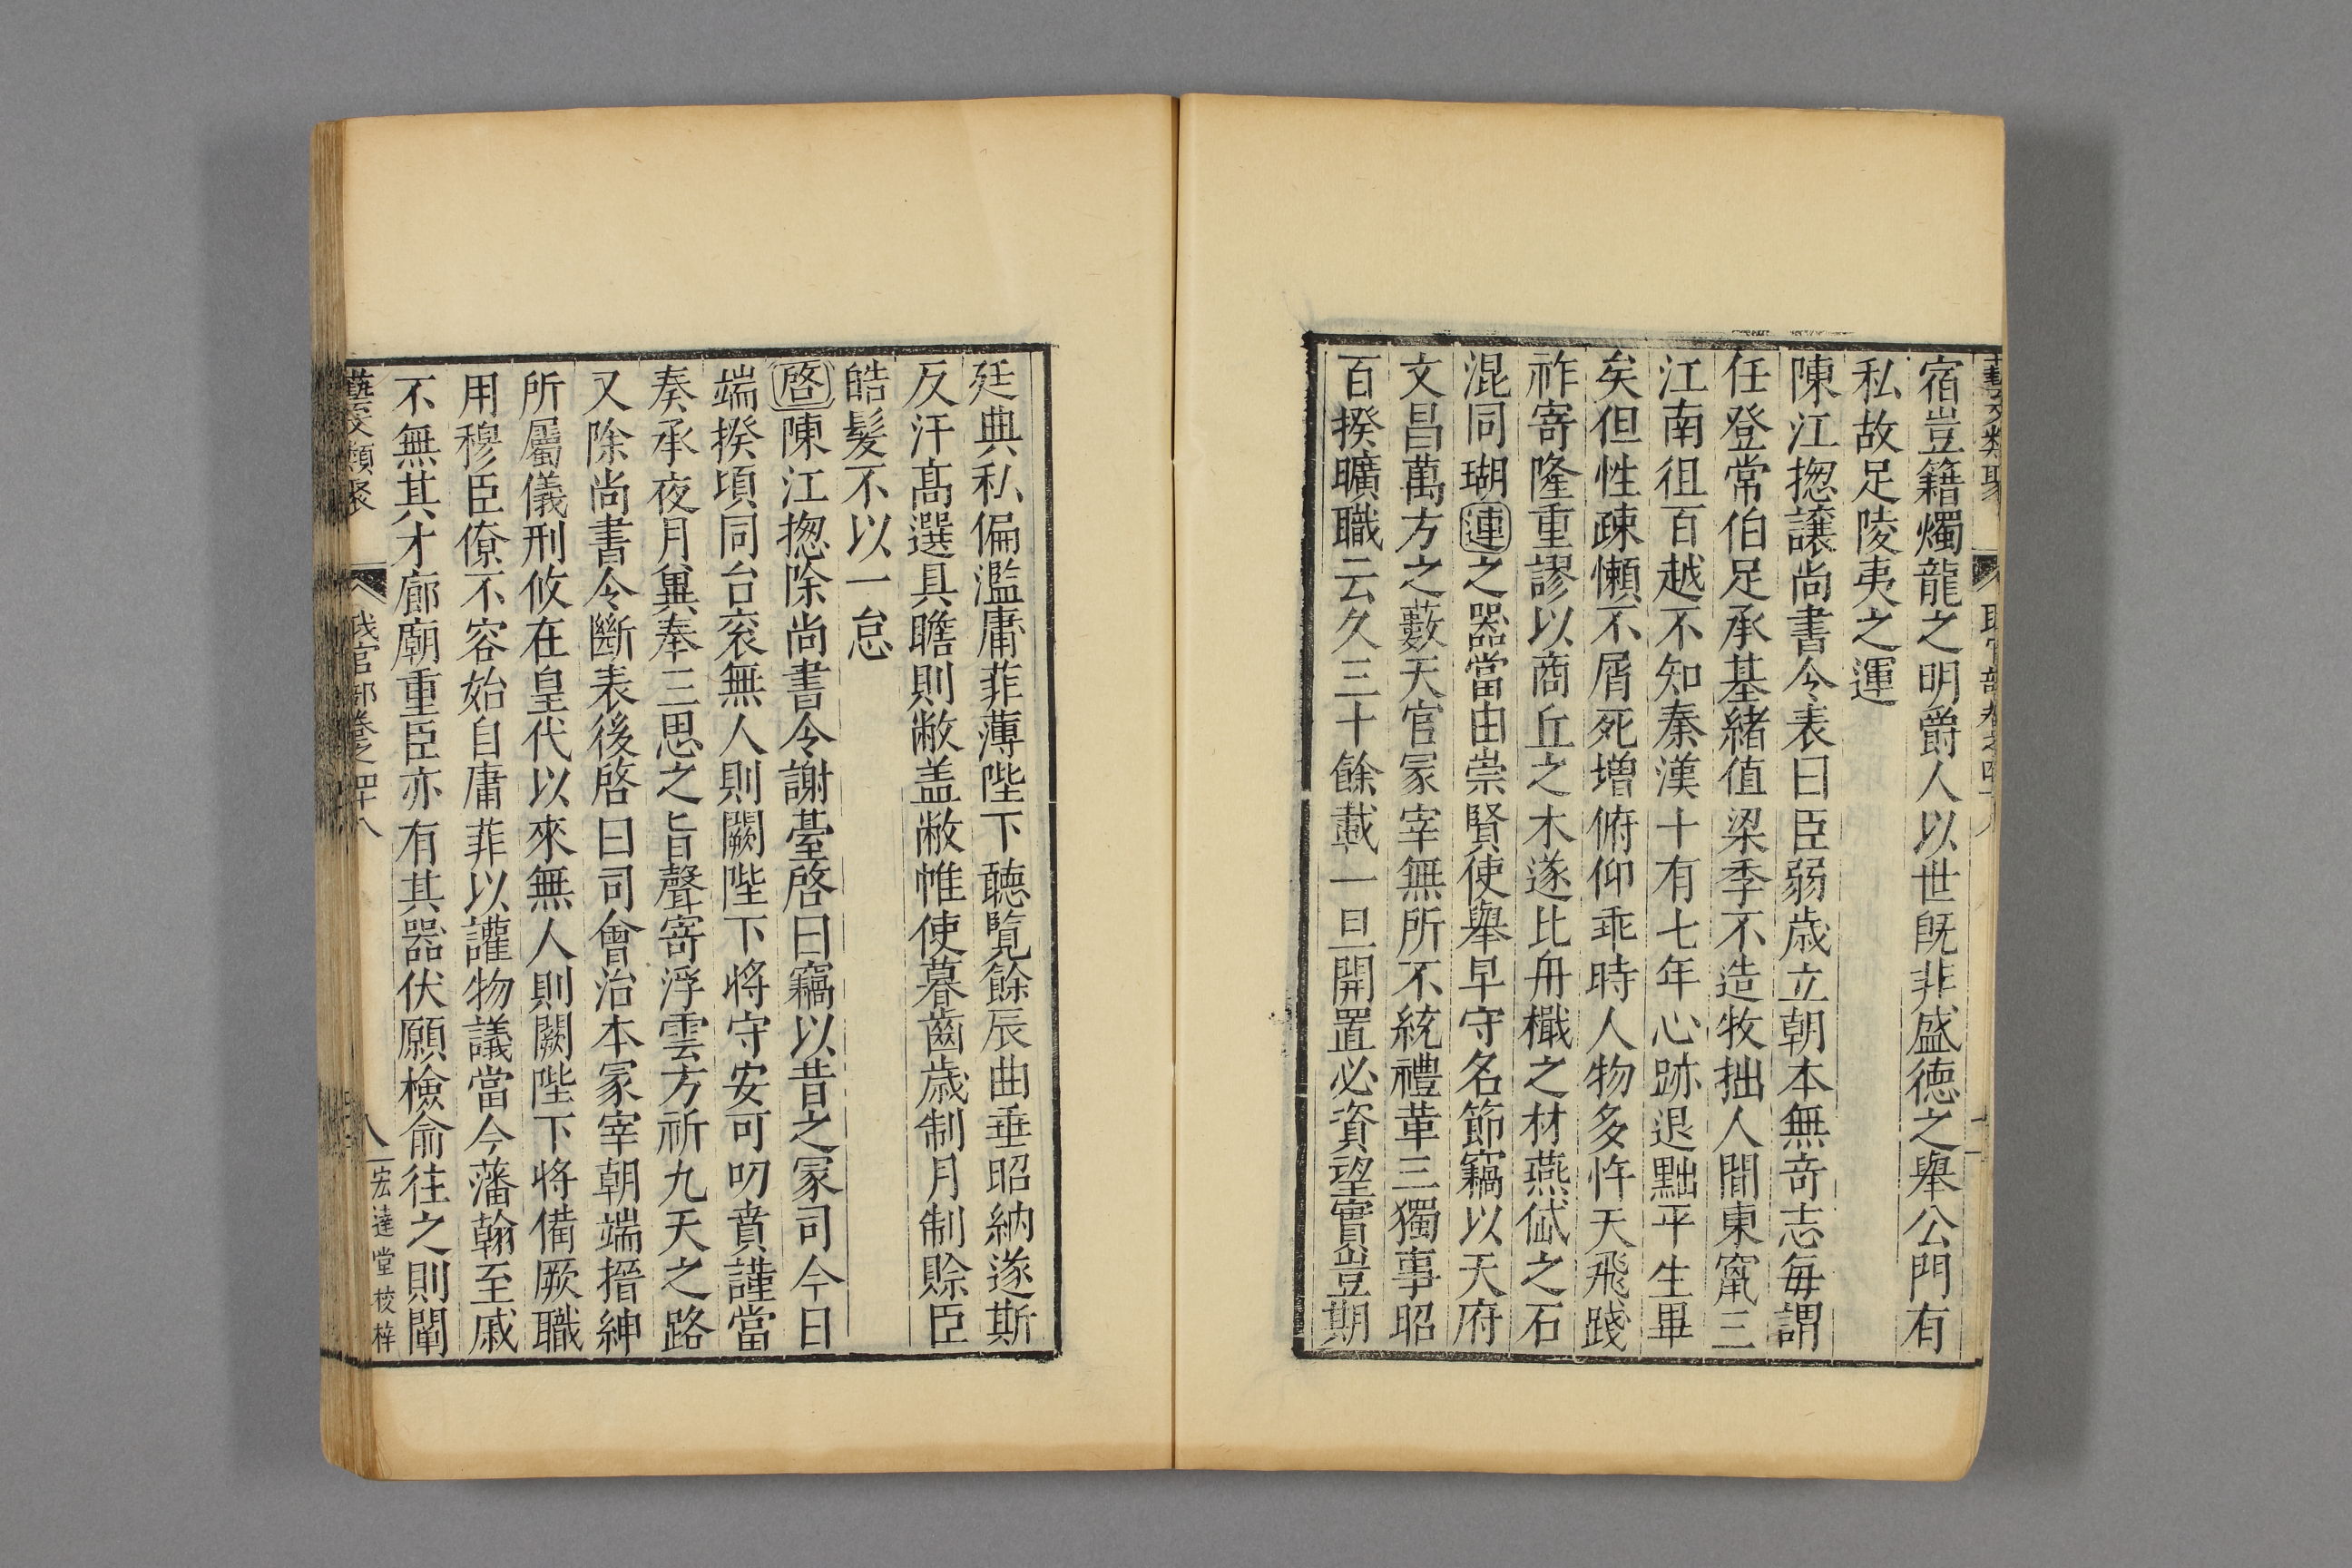 藝文類聚 職官部卷之四十八
宿豈籍燭龍之明爵人以世旣非盛德之舉公門有
私故足陵夷之運
陳江揔讓尚書令表曰臣弱歳立朝本無竒志每謂
任登常伯足承基緒值梁季不造牧拙人間東竄三
江南徂百越不知秦漢十有七年心跡退黜平生畢
矣但性疎懶不屑死增俯仰乖時人物多忤天飛踐
祚寄隆重謬以商丘之木遂比舟檝之材燕𥐻之石
混同瑚璉之器當由崇賢使舉早守名節竊以天府
文昌萬方之藪天官冡宰無所不統禮革三獨事昭
百揆曠職云久三十餘載一旦開置必資望實豈期
廷典私偏濫庸菲薄陛下聽覽餘辰曲垂昭納遂斯
反汗髙選具瞻則敝盖敝帷使暮齒歳制月制賒臣
皓髮不以一怠
啓陳江揔除尚書令謝臺啓曰竊以昔之冡司今日
端揆頃同台衮無人則闕陛下將守安可叨賁謹當
奏承夜月兾奉三思之旨聲寄浮雲方祈九天之路
又除尚書令斷表後啓曰司會治本冡宰朝端搢紳
所屬儀刑攸在皇代以來無人則闕陛下將備厥職
用穆臣僚不容始自庸菲以讙物議當今藩翰至戚
不無其才廊廟重臣亦有其器伏願檢俞往之則闡
藝文類聚 職官部卷之四十八 八 宏達堂校梓